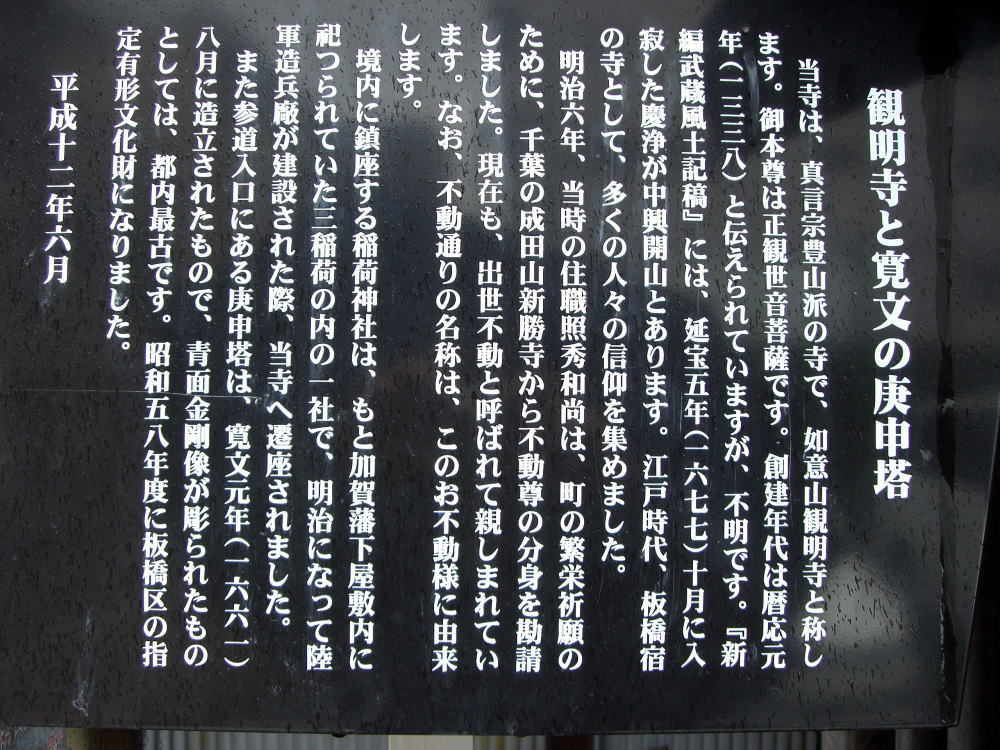 観明寺と寛文の庚申塔
当寺は、真言宗豊山派の寺で、如意山観明寺と称し
ます。御本尊は正観世音菩薩です。創建年代は暦応元
年(一三三八)と伝えられていますが、不明です。『新
編武蔵風土記稿』には、延宝五年(一六七七)十月に入
寂した慶浄が中興開山とあります。江戸時代、板橋宿
の寺として、多くの人々の信仰を集めました。
明治六年、当時の住職照秀和尚は、町の繁栄祈願の
ために、千葉の成田山新勝寺から不動尊の分身を勘請
しました。現在も、出世不動と呼ばれて親しまれてい
ます。なお、不動通りの名称は、このお不動様に由来
します。
境内に鎮座する稲荷神社は、もと加賀藩下屋敷内に
祀つられていた三稲荷の内の一社で、明治になって陸
軍造兵廠が建設された際、当寺へ遷座されました。
また参道入口にある庚申塔は、寛文元年(一六六一)
八月に造立されたもので、青面金剛像が彫られたもの
としては、都内最古です。昭和五八年度に板橋区の指
定有形文化財になりました。
平成十二年六月